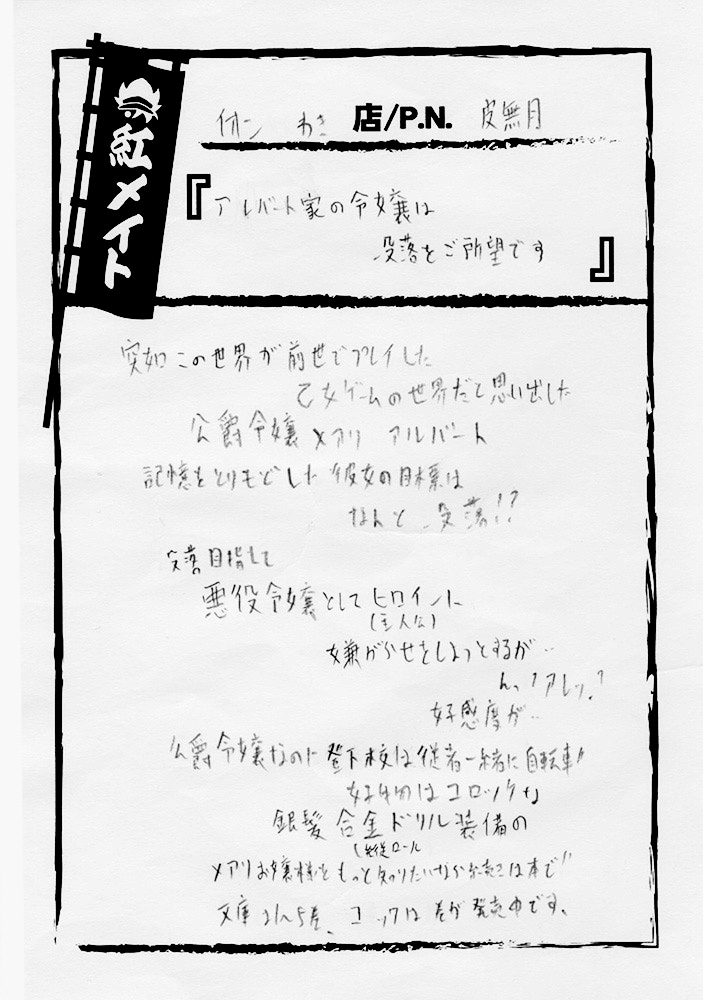 紅メイト
イオン わき 店/P.N. 皮無月
『アルバート家の令嬢は
没落をご所望です』
突如この世界が前世でプレイした
乙女ゲームの世界だと思い出した
公爵令嬢 メアリ アルバート
記憶をとりもどした彼女の目標は
なんと 没落!?
没落目指して
悪役令嬢としてヒロインに
(主人公)
嫌がらせをしようとするが‥
んっ?アレッ?
好感度が‥
公爵令嬢なのに登下校は従者一緒に自転車!!
好物はコロッケな
銀髪合金ドリル装備の
縦ロール
メアリお嬢様をもっと知りたいなら続きは本で!!
文庫 5巻、コミックは 巻が発売中です、